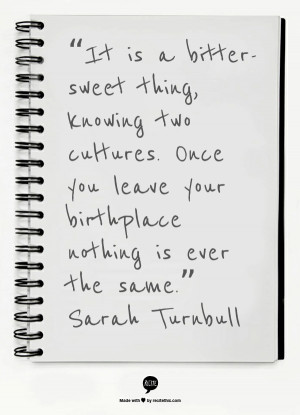 “It is a bitter-
sweet thing,
knowing two
cultures. Once
you leave your
birthplace
nothing is ever
the same.”
Sarah Turnbull
Made with ♥ by recitethis.com